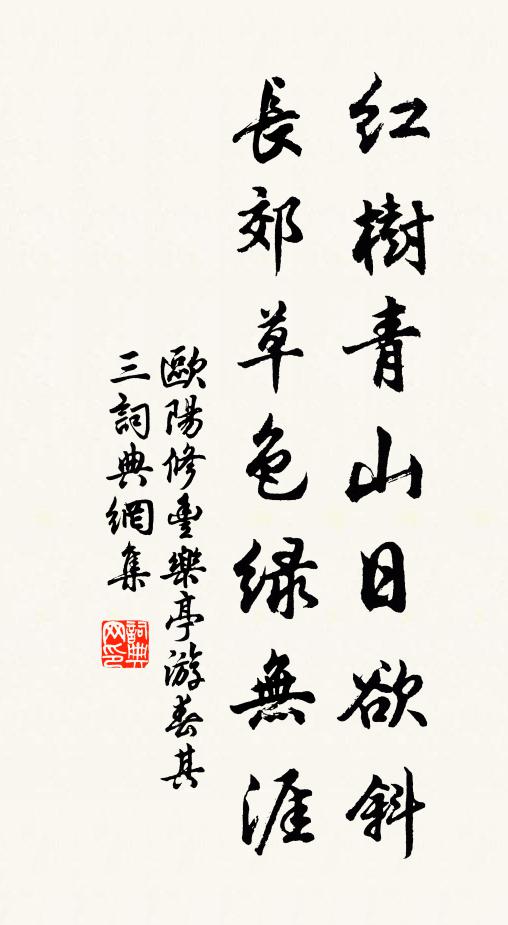 紅樹青山日欲斜
長郊草色緑無涯
歐陽修豐樂亭游春其
三詞典網集
詞典网印